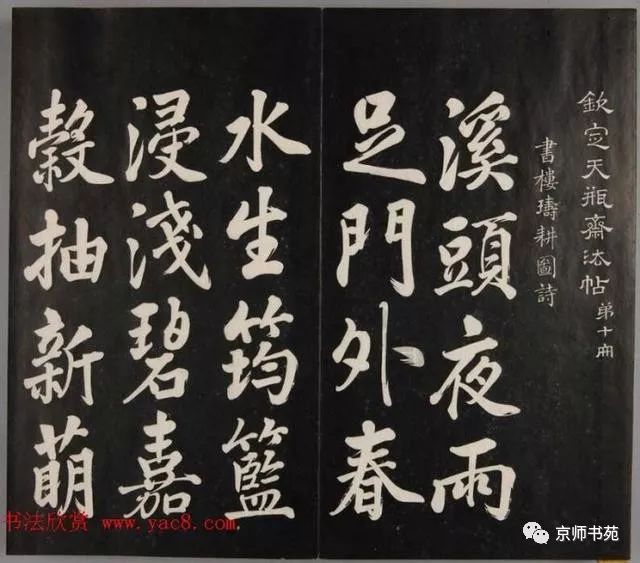 欽定天瓶齋法帖 第十冊
書樓璹耕圖詩
溪頭夜雨
足門外春
水生筠籃
浸淺碧嘉
穀抽新萌
书法欣赏 www.yac8.com
京师书苑